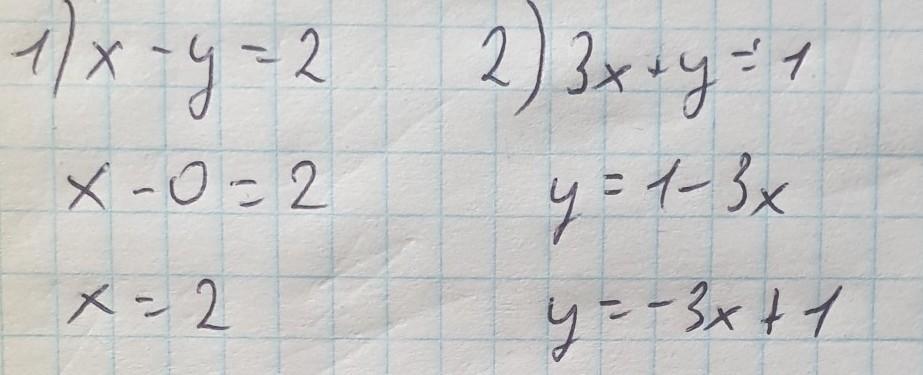 1) x - y = 2
x - 0 = 2
x = 2
2) 3x + y = 1
y = 1 - 3x
y = -3x + 1